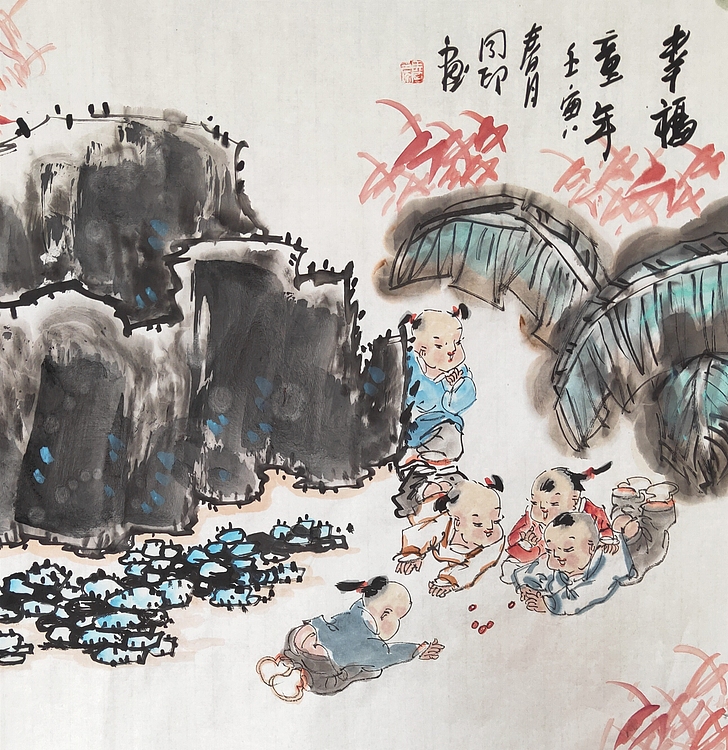 幸福
童年
壬寅
春月
周印
画